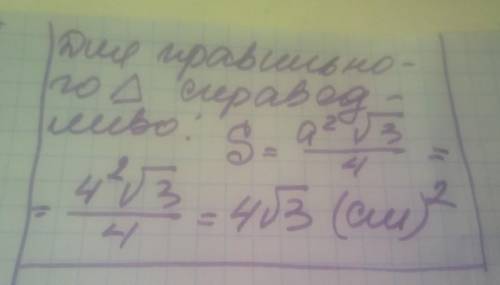 Для правильно-
го △ справед-
ливо: S = a²√3/4 =
= 4²√3/4 = 4√3 (см)²